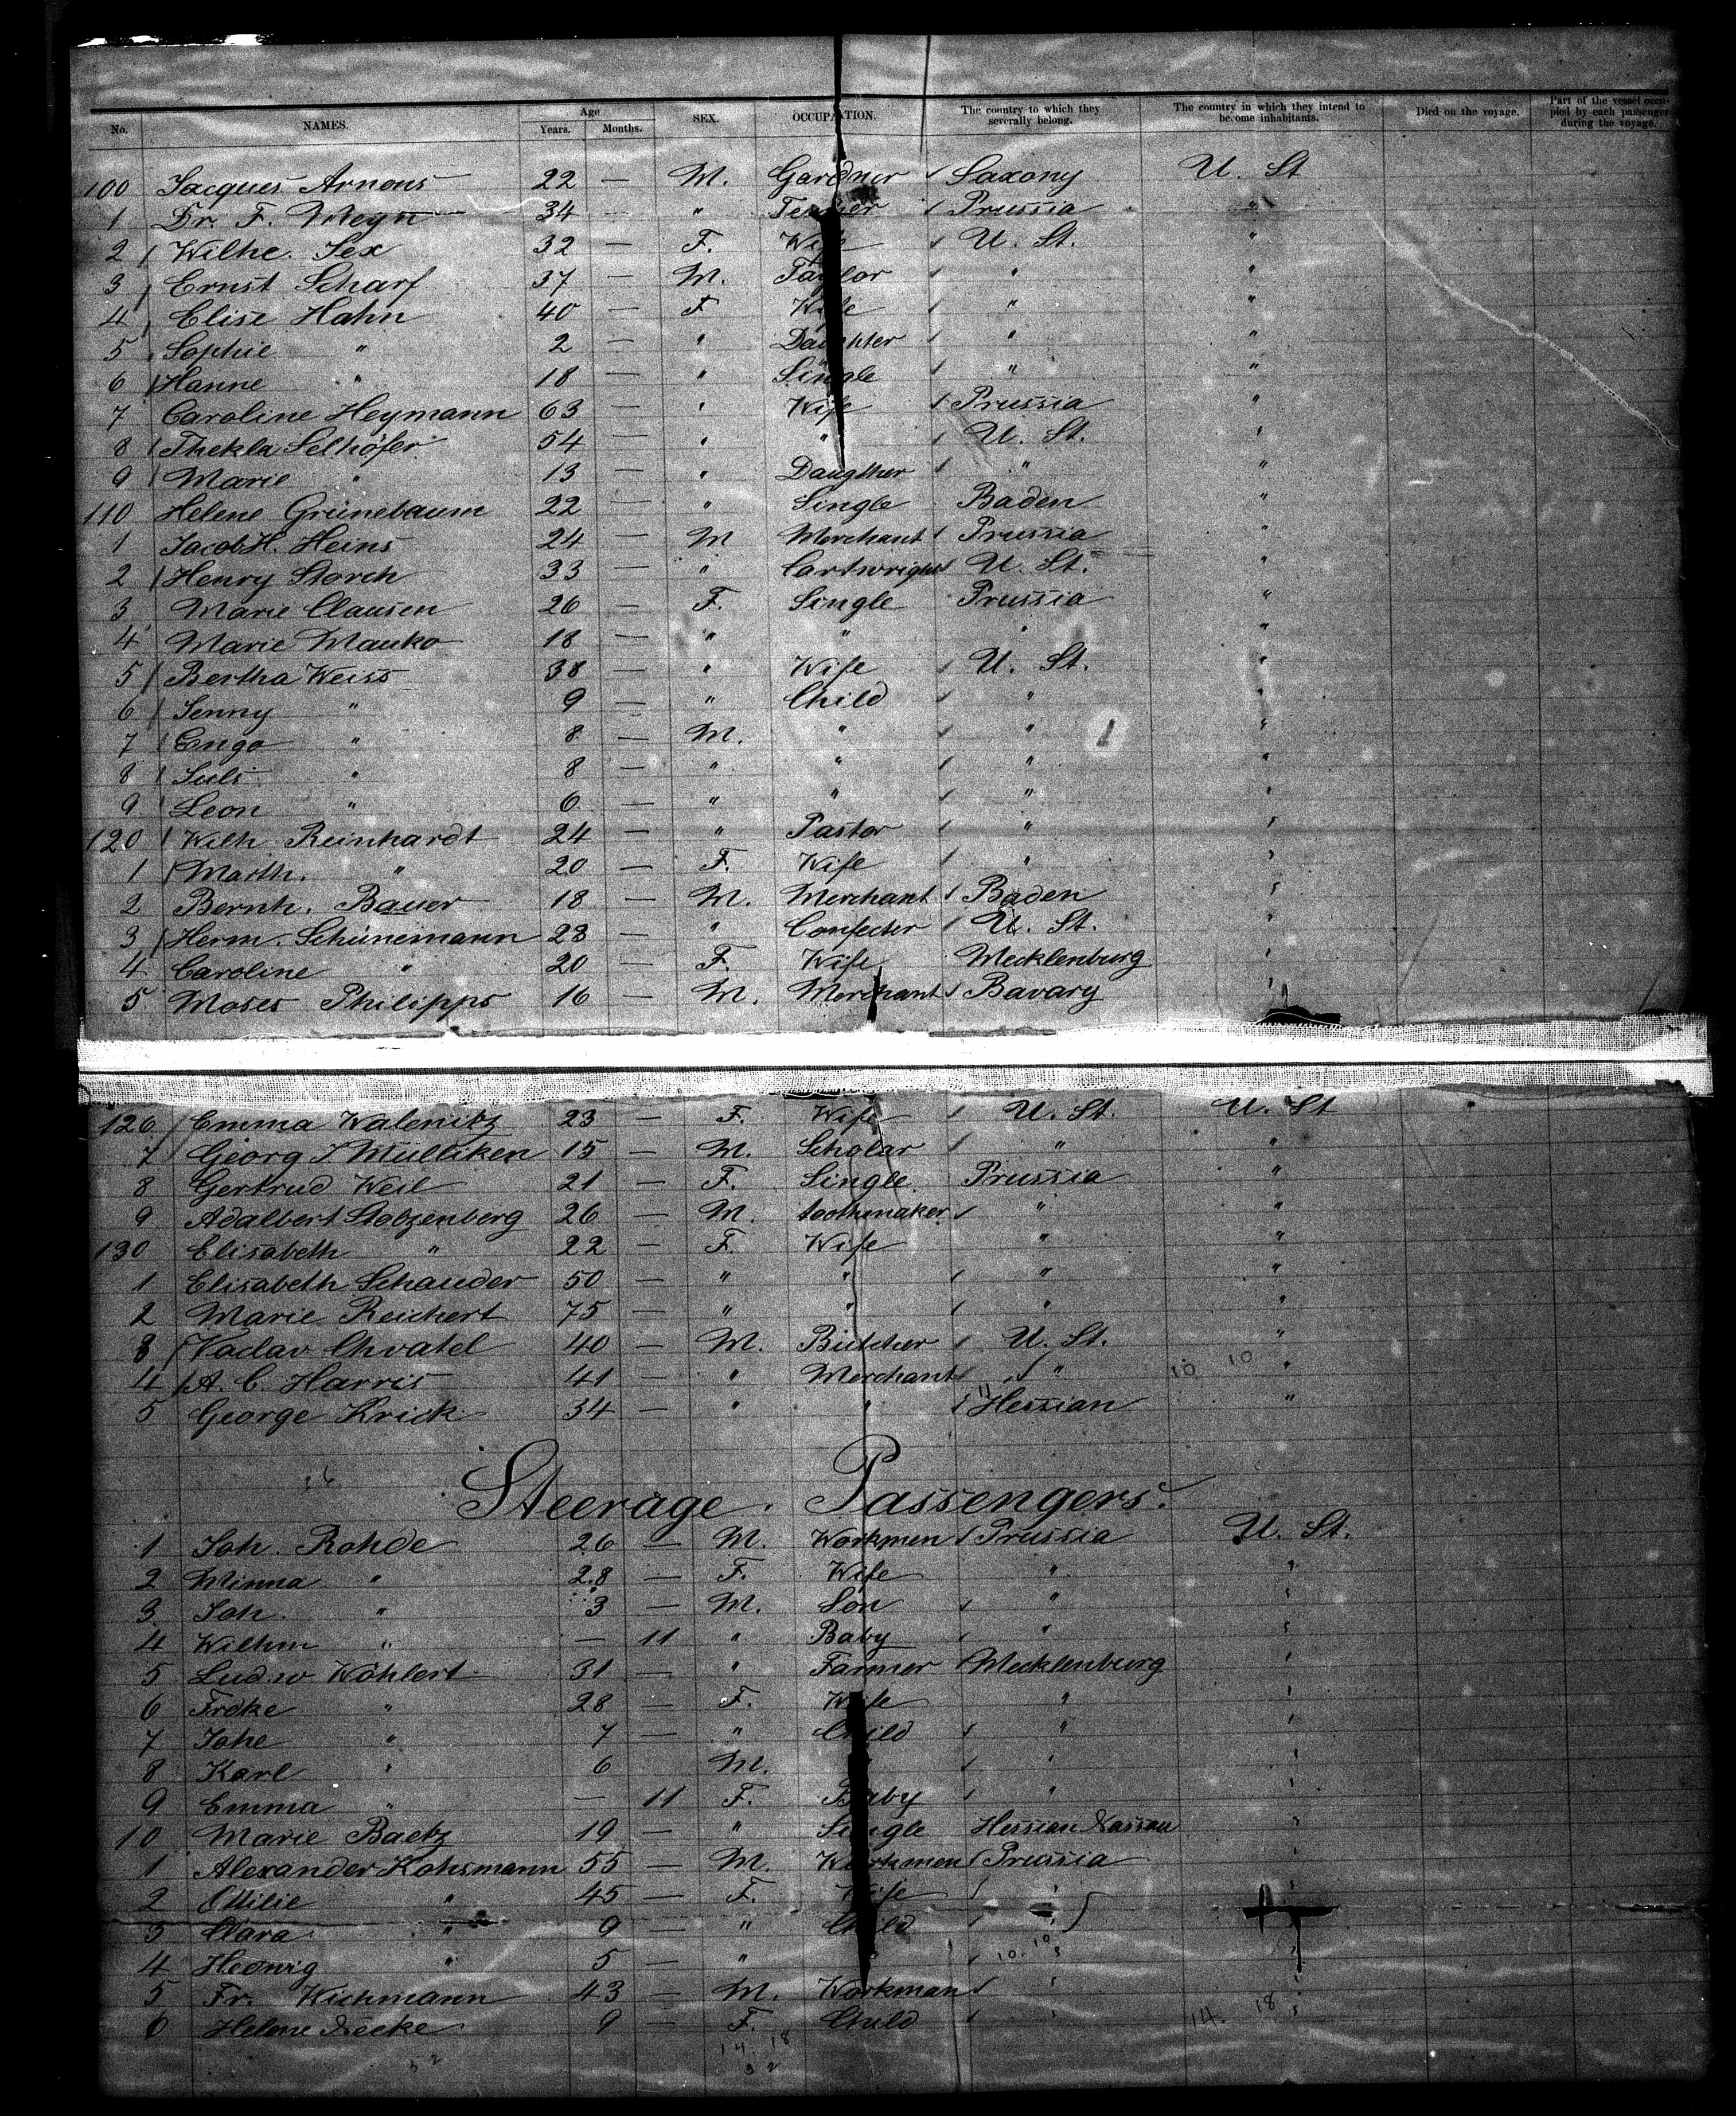 No. NAMES. Age Years. Months. SEX. OCCUPATION. The country to which they severally belong. The country in which they intend to become inhabitants. Died on the voyage. Part of the vessel occupied by each passenger during the voyage.
100 Jacques Arnous 22 — M. Gardner Saxony U. St
1 Dr. F. Wegn 34 — " Prussia "
2 Wilhe. Sex 32 — F. Wife U. St. "
3 Ernst Scharf 37 — M. Taylor " "
4 Elise Hahn 40 — F Wife " "
5 Sophie " 2 — " Daughter " "
6 Hanne " 18 — " Single " "
7 Caroline Heymann 63 — " Wife Prussia "
8 Thekla Selhöfer 54 — " " U. St. "
9 Marie " 13 — " Daugther " "
110 Helene Grünebaum 22 — " Single Baden "
1 Jacob H. Heins 24 — M Merchant Prussia "
2 Henry Storch 33 — " Cartwright U. St. "
3 Marie Clausen 26 — F. Single Prussia "
4 Marie Mauko 18 — " " " "
5 Bertha Weiss 38 — " Wife U. St. "
6 Jenny " 9 — " Child " "
7 " 8 — M. " " "
8 Juls " 8 — " " " "
9 Leon " 6 — " " " "
120 Wilh Reinhardt 24 — " Pastor " "
1 Marth. " 20 — F. Wife " "
2 Bernh. Bauer 18 — M. Merchant Baden "
3 Herm. Schünemann 28 — " Confecter U. St. "
4 Caroline " 20 — F. Wife Mecklenburg "
5 Moses Philipps 16 — M. Merchant Bavary "
126 Emma Walenitz 23 — F. Wife U. St. U. St
7 Georg J Mülliken 15 — M. Scholar " "
8 Gertrud Weil 21 — F. Single Prussia "
9 Adalbert Stolzenberg 26 — M. toothmaker " "
130 Elisabeth " 22 — F. Wife " "
1 Elisabeth Schauder 50 — " " " "
2 Marie Reichert 75 — " " " "
3 Vaclav Chvatel 40 — M. Butcher U. St. "
4 A. C. Harris 41 — " Merchant " 10 10 "
5 George Krick 34 — " " Hessian "
Steerage Passengers.
1 Joh. Rohde 26 — M. Workmen Prussia U. St.
2 Minna " 28 — F. Wife " "
3 Joh. " 3 — M. Son " "
4 Wilhm " — 11 " Baby " "
5 Ludw Wöhlert 31 — " Farmer Mecklenburg "
6 Frdke " 28 — F. Wife " "
7 Johe " 7 — " Child " "
8 Karl " 6 M. " "
9 Emma " — 11 F. Baby " "
10 Marie Baetz 19 — " Single Hessian Nassau "
1 Alexander Kohsmann 55 — M. Workmen Prussia "
2 Ottilie " 45 — F. Wife " "
3 Clara " 9 — " Child "
4 Hedwig " 5 — " " 10. 10 "
5 Fr. Wichmann 43 — M. Workman " "
6 Helene Recke 9 — F. Child " 14. 18 "
14. 18
32 32